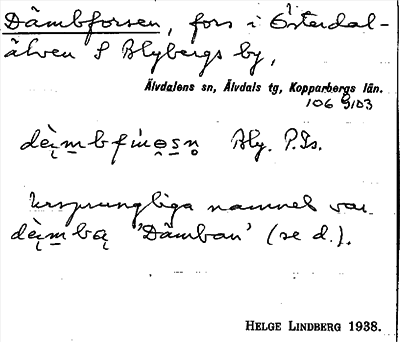 Dämbforsen, fors i Österdal-
älven S Blybergs by,
Älvdalens sn, Älvdals tg, Kopparbergs län.
106 9103
Bly. P. Is.
Ursprungliga namnet var
'Dämban' (se d.).
HELGE LINDBERG 1938.